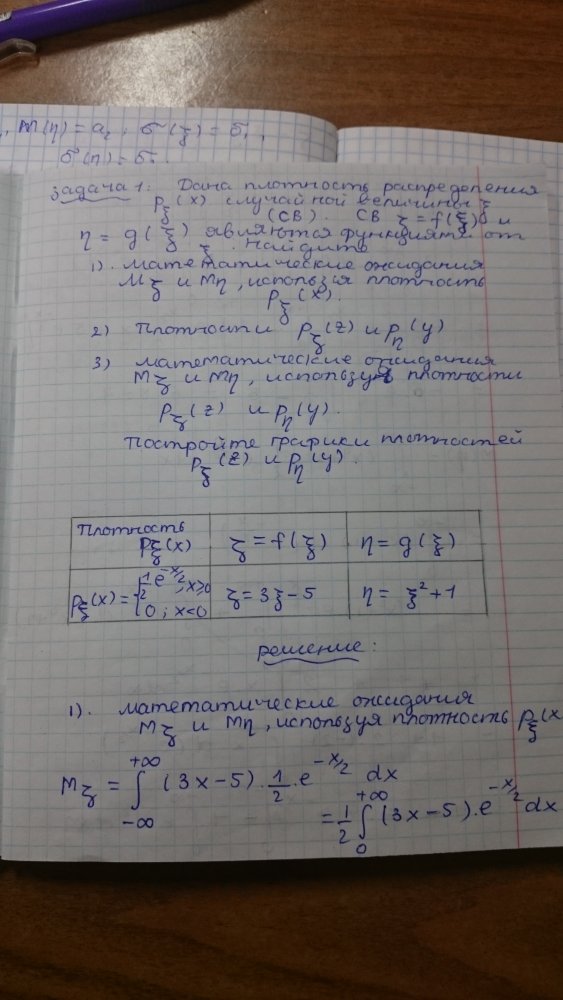 , M(η) = a₂, σ(ξ) = σ₁,
σ(η) = σ
Задача 1. Дана плотность распределения
p_ξ(x) случайной величины ξ
(СВ). СВ ζ = f(ξ) и
η = g(ξ) являются функциями от
ξ. Найдите
1). математические ожидания
Mζ и Mη, используя плотность
p_ξ(x).
2) Плотности p_ζ(z) и p_η(y)
3) математические ожидания
Mζ и Mη, используя плотности
p_ζ(z) и p_η(y).
Постройте графики плотностей
p_ζ(z) и p_η(y).
Плотность p_ξ(x) | ζ = f(ξ) | η = g(ξ)
p_ξ(x) = { 1/2 e^(-x/2), x≥0; 0; x<0 | ζ = 3ξ - 5 | η = ξ² + 1
Решение:
1). математические ожидания
Mζ и Mη, используя плотность p_ξ(x
Mζ = ∫_{-∞}^{+∞} (3x-5)·1/2·e^(-x/2) dx
= 1/2 ∫_0^{+∞} (3x-5)·e^(-x/2) dx